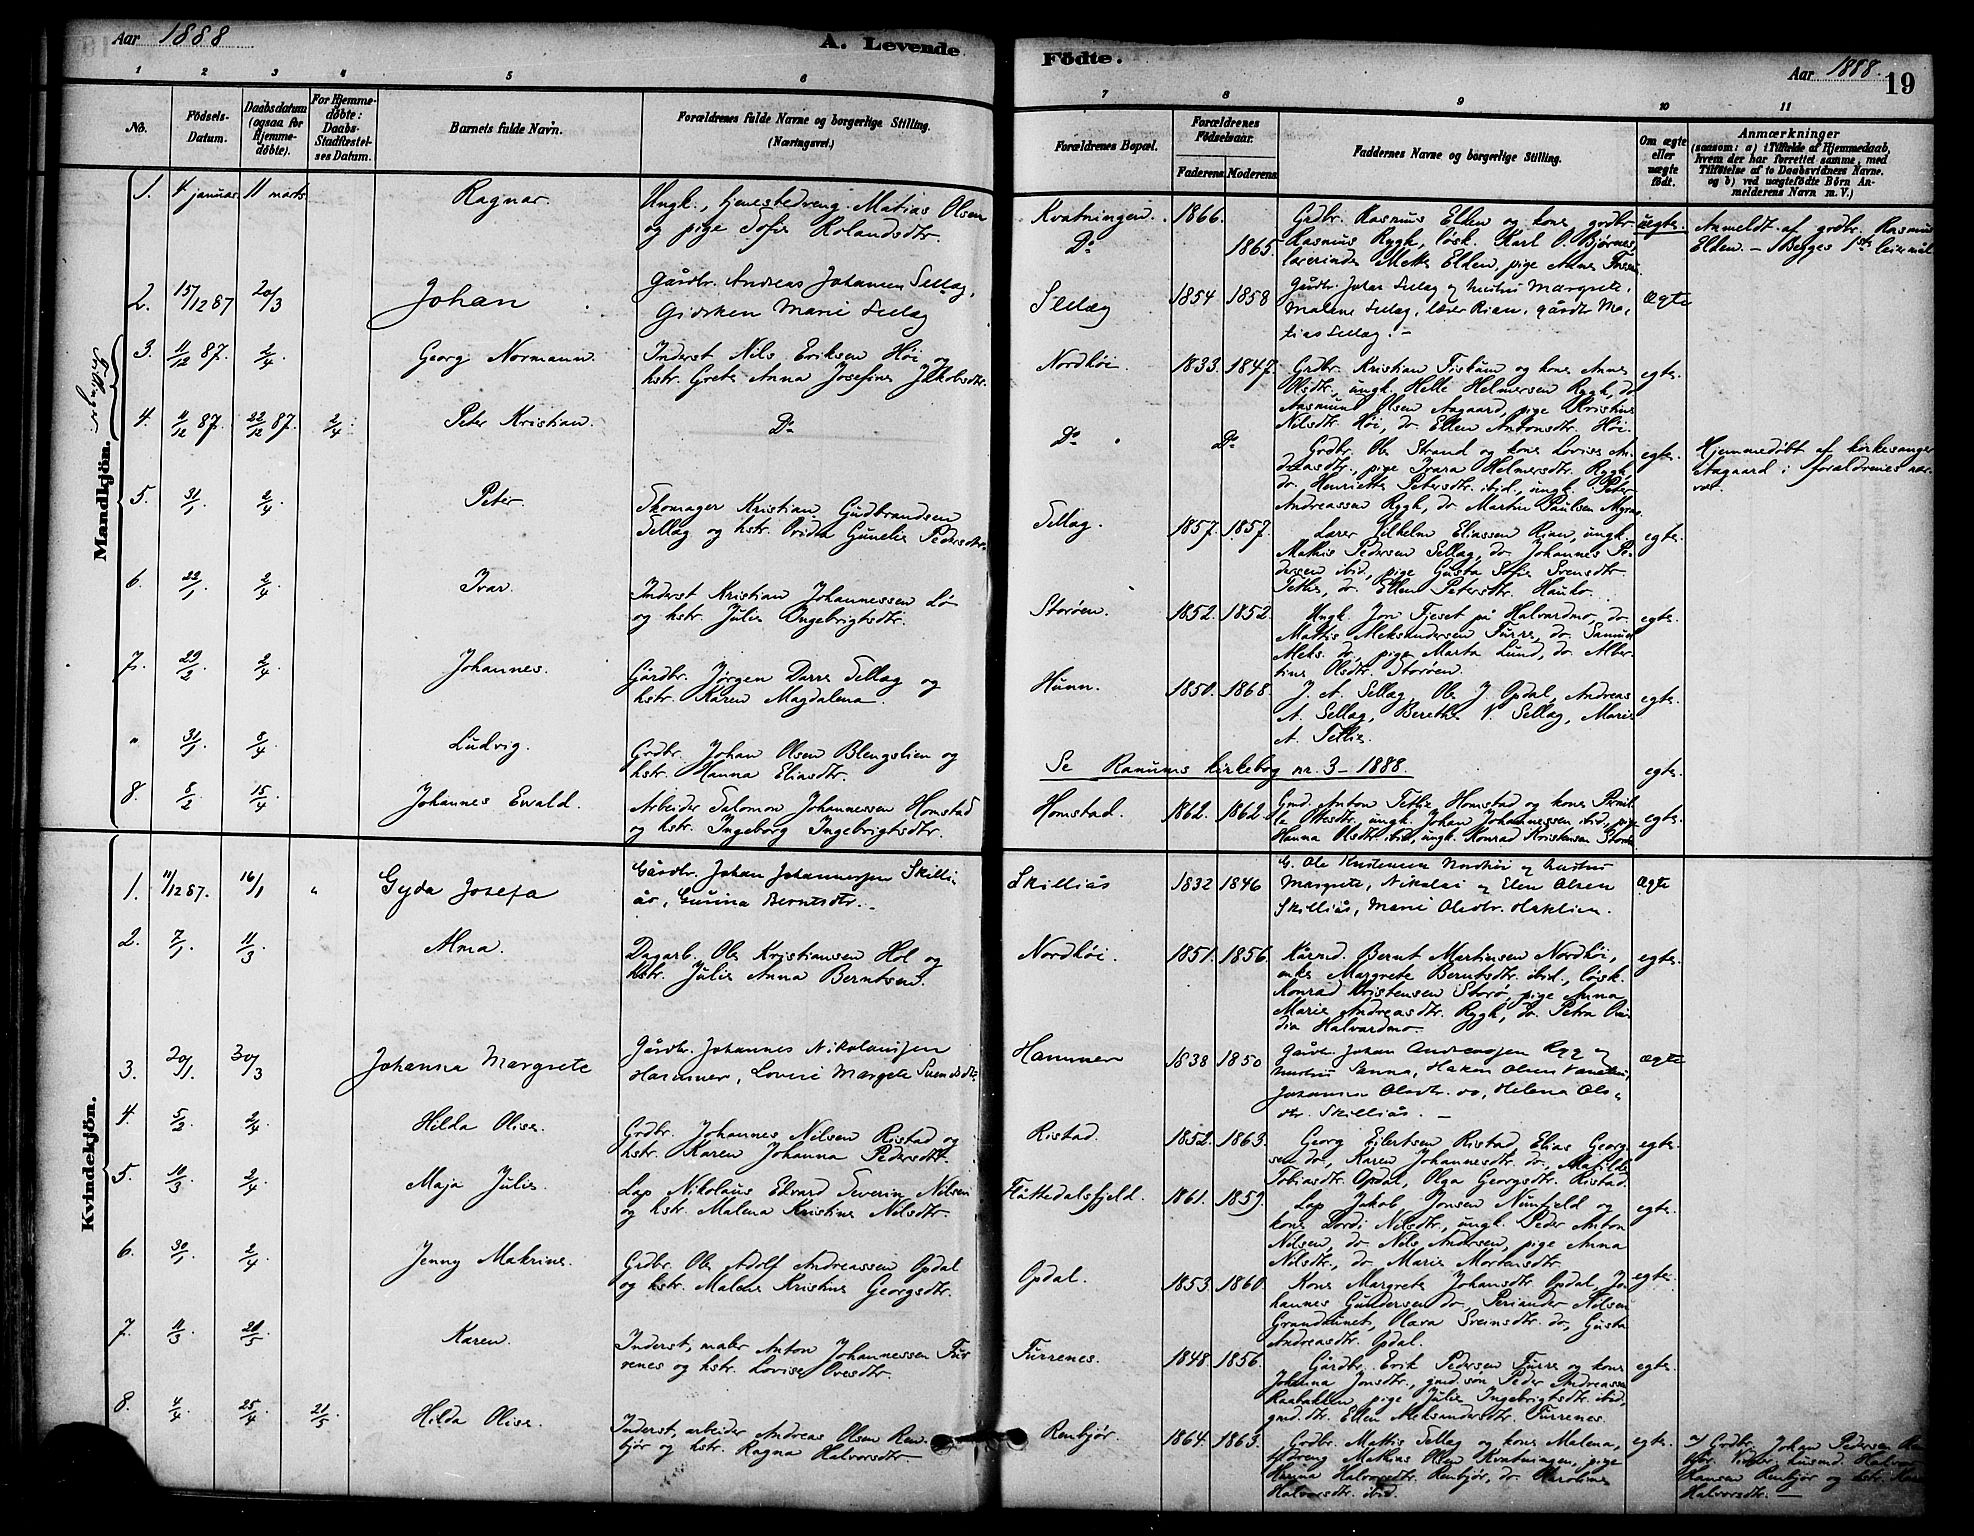 Aar 1888
A. Levende
Födte.
Aar 1888.
19
1 2 3 4 5 6
7 8 9 10 11
No.
Födsels-
Datum.
Daabsdatum
(ogsaa for
Hjemme-
döbte).
For Hjemme-
döbte:
Daabs-
Stadfæstel-
ses Datum.
Barnets fulde Navn.
Forældrenes fulde Navne og borgerlige Stilling.
(Næringsvei.)
Forældrenes Bopæl.
Forældrenes
Födselsaar.
Faderens. Moderens.
Faddernes Navne og borgerlige Stilling.
Om ægte
eller
uægte
födt.
Anmærkninger
(saasom: a) i Tilfælde af Hjemmedaab,
hvem der har forrettet samme, med
Tilföielse af to Daabsvidners Navne.
og b) ved uægtefödte Börn An-
melderens Navn m. V.)
Mandkjön.
Tvillinger
1. 4 januar 11 marts Ragnar.
Ungk., tjenestedreng Matias Olsen
og pige Sofie Rolandsdtr.
Kvatningen. 1866.
Do 1865.
Grdbr. Rasmus Elden og kone, grdbr.
Rasmus Rygh, løsk. Karl O. Bjørnes,
lærerinde Mette Elden, pige Anne
uegte.
Anmeldt af grdbr. Rasmus
Elden. – Begges 1ste leiermål
2. 15/12 87 20/3 Johan
Gårdbr. Andreas Johansen Sellæg,
Gjørken Marie Sellæg
Sellæg 1854 1858
Gårdbr. Johan Sellæg og hustru Margrete,
Malene Sellæg, lærer Rian, gårdbr Ma-
tias Sellæg. –
Ægte
3. 11/12 87. 2/4 Georg Normann.
Inderst Nils Eriksen Høi og
hstr. Grete Anna Josefine Jakobsdtr.
Nordhöi. 1833. 1847.
Grdbr. Kristian Fiskum og kone Anne
Olsdtr., ungk. Helle Helmersen Rygh, do
Aasmund Olsen Aagaard, pige Kristine
Nilsdtr. Høi, do Ellen Antonsdtr. Høi.
egte.
4. 11/12 87. 22/12 87. 2/4 Peter Kristian.
Do
Do Do
Grdbr. Ole Strand og kone Lovise An-
dreasdtr., pige Ivara Helmersdtr. Rygh,
do. Henriette Petersdtr. ibid., ungk. Peter
Andreassen Rygh, do Martin Paulsen
egte.
Hjemmedöbt af kirkesanger
Aagaard i forældrenes nær-
vær.
5. 31/1 2/4 Peter.
Skomager Kristian Gudbrandsen
Sellæg og hstr. Gunelie Pedersdtr.
Sellæg. 1857. 1857.
Lærer Vilhelm Eliassen Rian, ungk.
Mathis Pedersen Sellæg, do. Johannes Pe-
dersen ibid., pige Gusta Sofie Svensdtr.
Tetlie, do. Ellen Petersdtr.
egte.
6. 22/1 2/4 Ivar.
Inderst Kristian Johannessen Lø
og hstr. Julie Ingebrigtsdtr.
Storöen. 1852. 1852.
Ungk. Jon Tjeset på Halvardmo, do.
Mattis Aleksandersen Furre, do. Samuel
Aleks. do, pige Marta Lund, do. Alber-
tine Olsdtr. Storöen.
egte.
7. 29/2 2/4 Johannes.
Gårdbr. Jørgen Darre Sellæg og
hstr. Karen Magdalena.
Hunn. 1850. 1868.
J. A. Sellæg, Ole J. Opdal, Andreas
A. Sellæg, Berethe N. Sellæg, Marie
A. Tetlie.
egte.
" 31/1 8/4 Ludvig.
Grdbr. Johan Olsen Blengslien og
hstr. Hanna Eliasdtr.
Se Ranums kirkebog nr. 3 – 1888.
egte.
8. 8/2 15/4 Johannes Ewald.
Arbeider Salomon Johannessen Homstad
og hstr. Ingeborg Ingebrigtsdtr.
Homstad. 1862. 1862.
Gmd. Anton Tetlie Homstad og kone Pernil-
le Ottesdtr., ungk. Johan Johannessen ibid., pige
Hanna Olsdtr ibid., ungk. Konrad Kristensen Storöen
egte.
Kvindekjön.
1. 11/12 87. 16/1 " Gyda Josefa
Gårdbr. Johan Johannessen Skilli-
ås, Gurina Berntsdtr.
Skilliås 1832 1846
G. Ole Nordhöi og hustru
Margrete, Nikolai og Elen Olsen
Skilliås, Marie Olsdtr. Haklien.
Ægte
2. 7/1 11/3 Alma.
Dagarb. Ole Kristiansen Hol og
hstr. Julie Anna Berntsen.
Nordhöi. 1851. 1856.
Kårmd. Bernt Martinsen Nordhöi,
enke Margrete Berntsdtr. ibid., løsk.
Konrad Kristensen Storö, pige Anna
Marie Andreasdtr. Rygh, do. Petra Ovi-
dia Halvardmo.
egte.
3. 20/1. 30/3 Johanna Margrete
Gårdbr. Johannes Nikolaisen
Hammer, Lovise Margrete Svendsdtr.
Hammer 1838 1850
Gårdbr. Johan Andreassen Rygg og
hustru Sanna, Hakon Olsen
Johanna Olsdtr. do, Helena Ols-
dtr. Skilliås. –
ægte
4. 5/2 2/4 Hilda Olise.
Grdbr. Johannes Nilsen Ristad og
hstr. Karen Johanna Pedersdtr.
Ristad. 1852. 1863.
Georg Eilertsen Ristad, Elias Georg-
sen do, Karen Johannesdtr. do, Matilde
Tobiasdtr. Opdal, Olga Georgsdtr. Ristad.
egte.
5. 10/3 2/4 Maja Julie.
Lap Nikolaus Edvard Severin Nilsen
og hstr. Malena Kristine Nilsdtr.
Flåttedalsfjeld. 1861. 1859.
Lap Jakob Jonsen Nunfjeld og
kone Dordi Nilsdtr., ungk. Peder Anton
Nilsen, do Nils Andersen, pige Anna
Nilsdtr., do Marie Mortensdtr.
egte.
6. 30/1. 2/4 Jenny Makrine.
Grdbr. Ole Adolf Andreassen Opdal
og hstr. Malene Kristine Georgsdtr.
Opdal. 1853. 1860.
Kone Margrete Johansdtr. Opdal, Jo-
hannes Gundersen do, Periander Nilsen
Grandtunet, Olava Sveinsdtr. do, Gusta
Andreasdtr. Opdal.
egte.
7. 11/3 21/5 Karen.
Inderst, maler Anton Johannessen Fur-
renes og hstr. Lovise Ovesdtr.
Furrenes. 1848. 1856.
Gårdbr. Erik Pedersen Furre og kone
Johanna Jonsdtr., gmd.søn Peder Andreassen
Raabakken, pige Julie Ingebrigtsdtr. ibid,
gmd.dtr. Ellen Aleksandersdtr. Furrenes.
egte.
8. 4/4 25/4 21/5. Hilda Olise.
Inderst, arbeider Andreas Olsen Ren-
bjør og hstr. Ragna Halvorsdtr.
Renbjør. 1864. 1863.
Grdbr. Mattis Sellæg og kone Malena,
tj.dreng Mathias Olsen Kvatningen, pige
Hanna Halvorsdtr. Renbjør, do Karoline
Halvorsdtr. ibid.
egte.
Grdbr. Johan Pedersen
husmd. Halvor
Hansen Renbjør og hstr.
Halvorsdtr. –